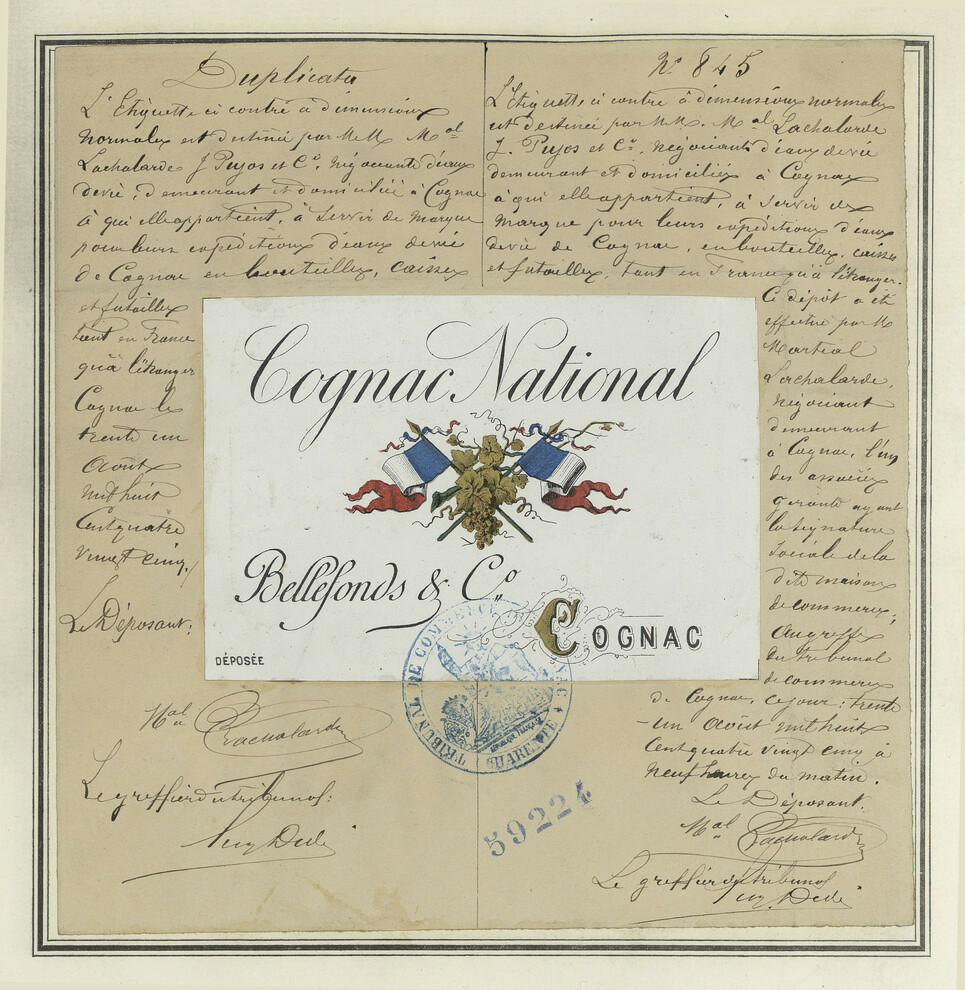 Duplicata
L'Etiquette ci contre à dimensions
normales est destinée par M.M. Mal
Lachalarde J Pujos et Cie, Négociants d'eaux
de vie, demeurant et domiciliés à Cognac
à qui elle appartient, à servir de marque
pour leurs expéditions d'eaux de vie
de Cognac en bouteilles, caisses
et futailles
tant en France
qu'à l'étranger
Cognac le
trente un
Août
mil huit
Cent quatre
vingt cinq./
Le Déposant:
Mal Lachalarde
Le greffier du tribunal:
No 845
L'Etiquette ci contre à dimensions normales
est destinée par M.M. Mal Lachalarde
J. Pujos et Cie, Négociants d'eaux de vie
demeurant et domiciliés à Cognac
à qui elle appartient, à servir de
marque pour leurs expéditions d'eaux
de vie de Cognac, en bouteilles, caisses
et futailles, tant en France qu'à l'étranger.
Ce dépôt a été
effectué par M
Martial
Lachalarde,
Négociant
demeurant
à Cognac, l'un
des associés
gérants ayant
la signature
sociale de la
dite maison
de commerce,
Au greffe
du tribunal
de commerce
de Cognac, ce jour, trente
un Août mil huit
Cent quatre vingt cinq à
neuf heures du matin.
Le Déposant.
Mal Lachalarde
Le greffier du tribunal
Cognac National
Bellefonds & Co.
COGNAC
DÉPOSÉE
TRIBUNAL DE COMMERCE DE COGNAC
CHARENTE
RÉPUBLIQUE FRANÇAISE
59224